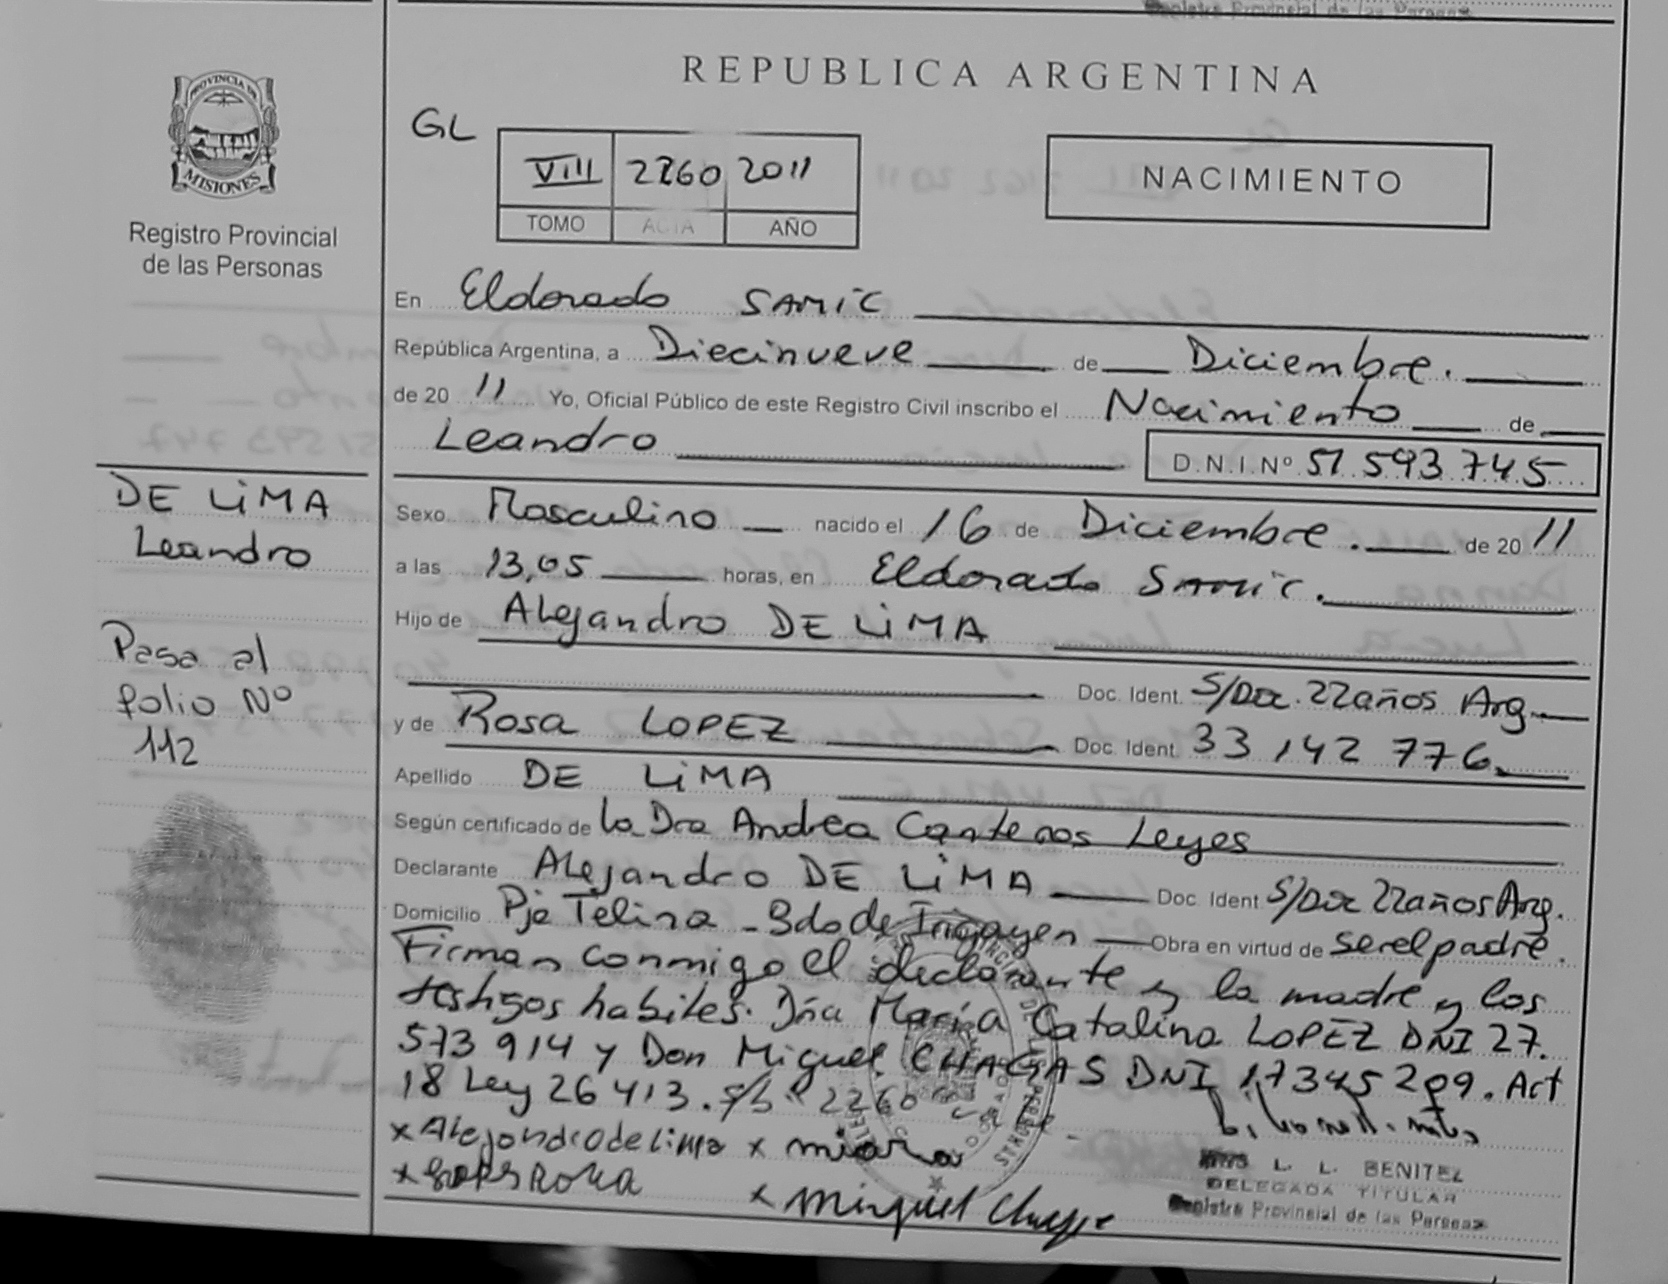 Registro Provincial de las Personas
REPUBLICA ARGENTINA
PROVINCIA DE
MISIONES
Registro Provincial
de las Personas
GL
VIII 2260 2011
TOMO ACTA AÑO
NACIMIENTO
En Eldorado SAMIC
República Argentina, a Diecinueve de Diciembre.
de 20 11 Yo, Oficial Público de este Registro Civil inscribo el Nacimiento de
Leandro D.N.I.Nº 51.593.745
DE LiMA
Leandro
Pasa al
folio Nº
112
Sexo Masculino nacido el 16 de Diciembre. de 20 11
a las 13,05 horas, en Eldorado SAMIC.
Hijo de Alejandro DE LiMA
Doc. Ident. S/Doc. 22años Arg
y de Rosa LOPEZ Doc. Ident. 33 142 776.
Apellido DE LiMA
Según certificado de la Dra Andrea Canteros Leyes
Declarante Alejandro DE LiMA Doc. Ident S/Doc 22años Arg.
Domicilio Pje Telina - Bdo de Irigoyen Obra en virtud de ser el padre.
Firman conmigo el declarante y la madre y los
testigos habiles. Dña María Catalina LOPEZ DNI 27.
573 914 y Don Miguel CHAGAS DNI 17345209. Act
18 Ley 26413. 2260
x Alejandro de lima x
x
x Miguel
L. L. BENITEZ
DELEGADA TITULAR
Registro Provincial de las Personas